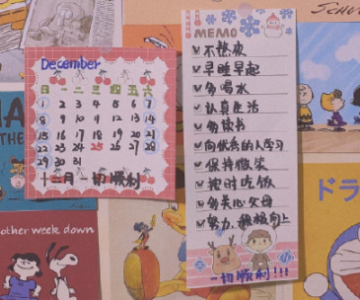 December
日 一 二 三 四 五 六
1 2 3 4 5 6 7
8 9 10 11 12 13 14
15 16 17 18 19 20 21
22 23 24 25 26 27 28
29 30 31
十二月 一切顺利
MEMO
不熬夜
早睡早起
多喝水
认真生活
多读书
向优秀的人学习
保持微笑
按时吃饭
多关心父母
努力,积极向上
一切顺利!!!
other week down
ドラ
THE